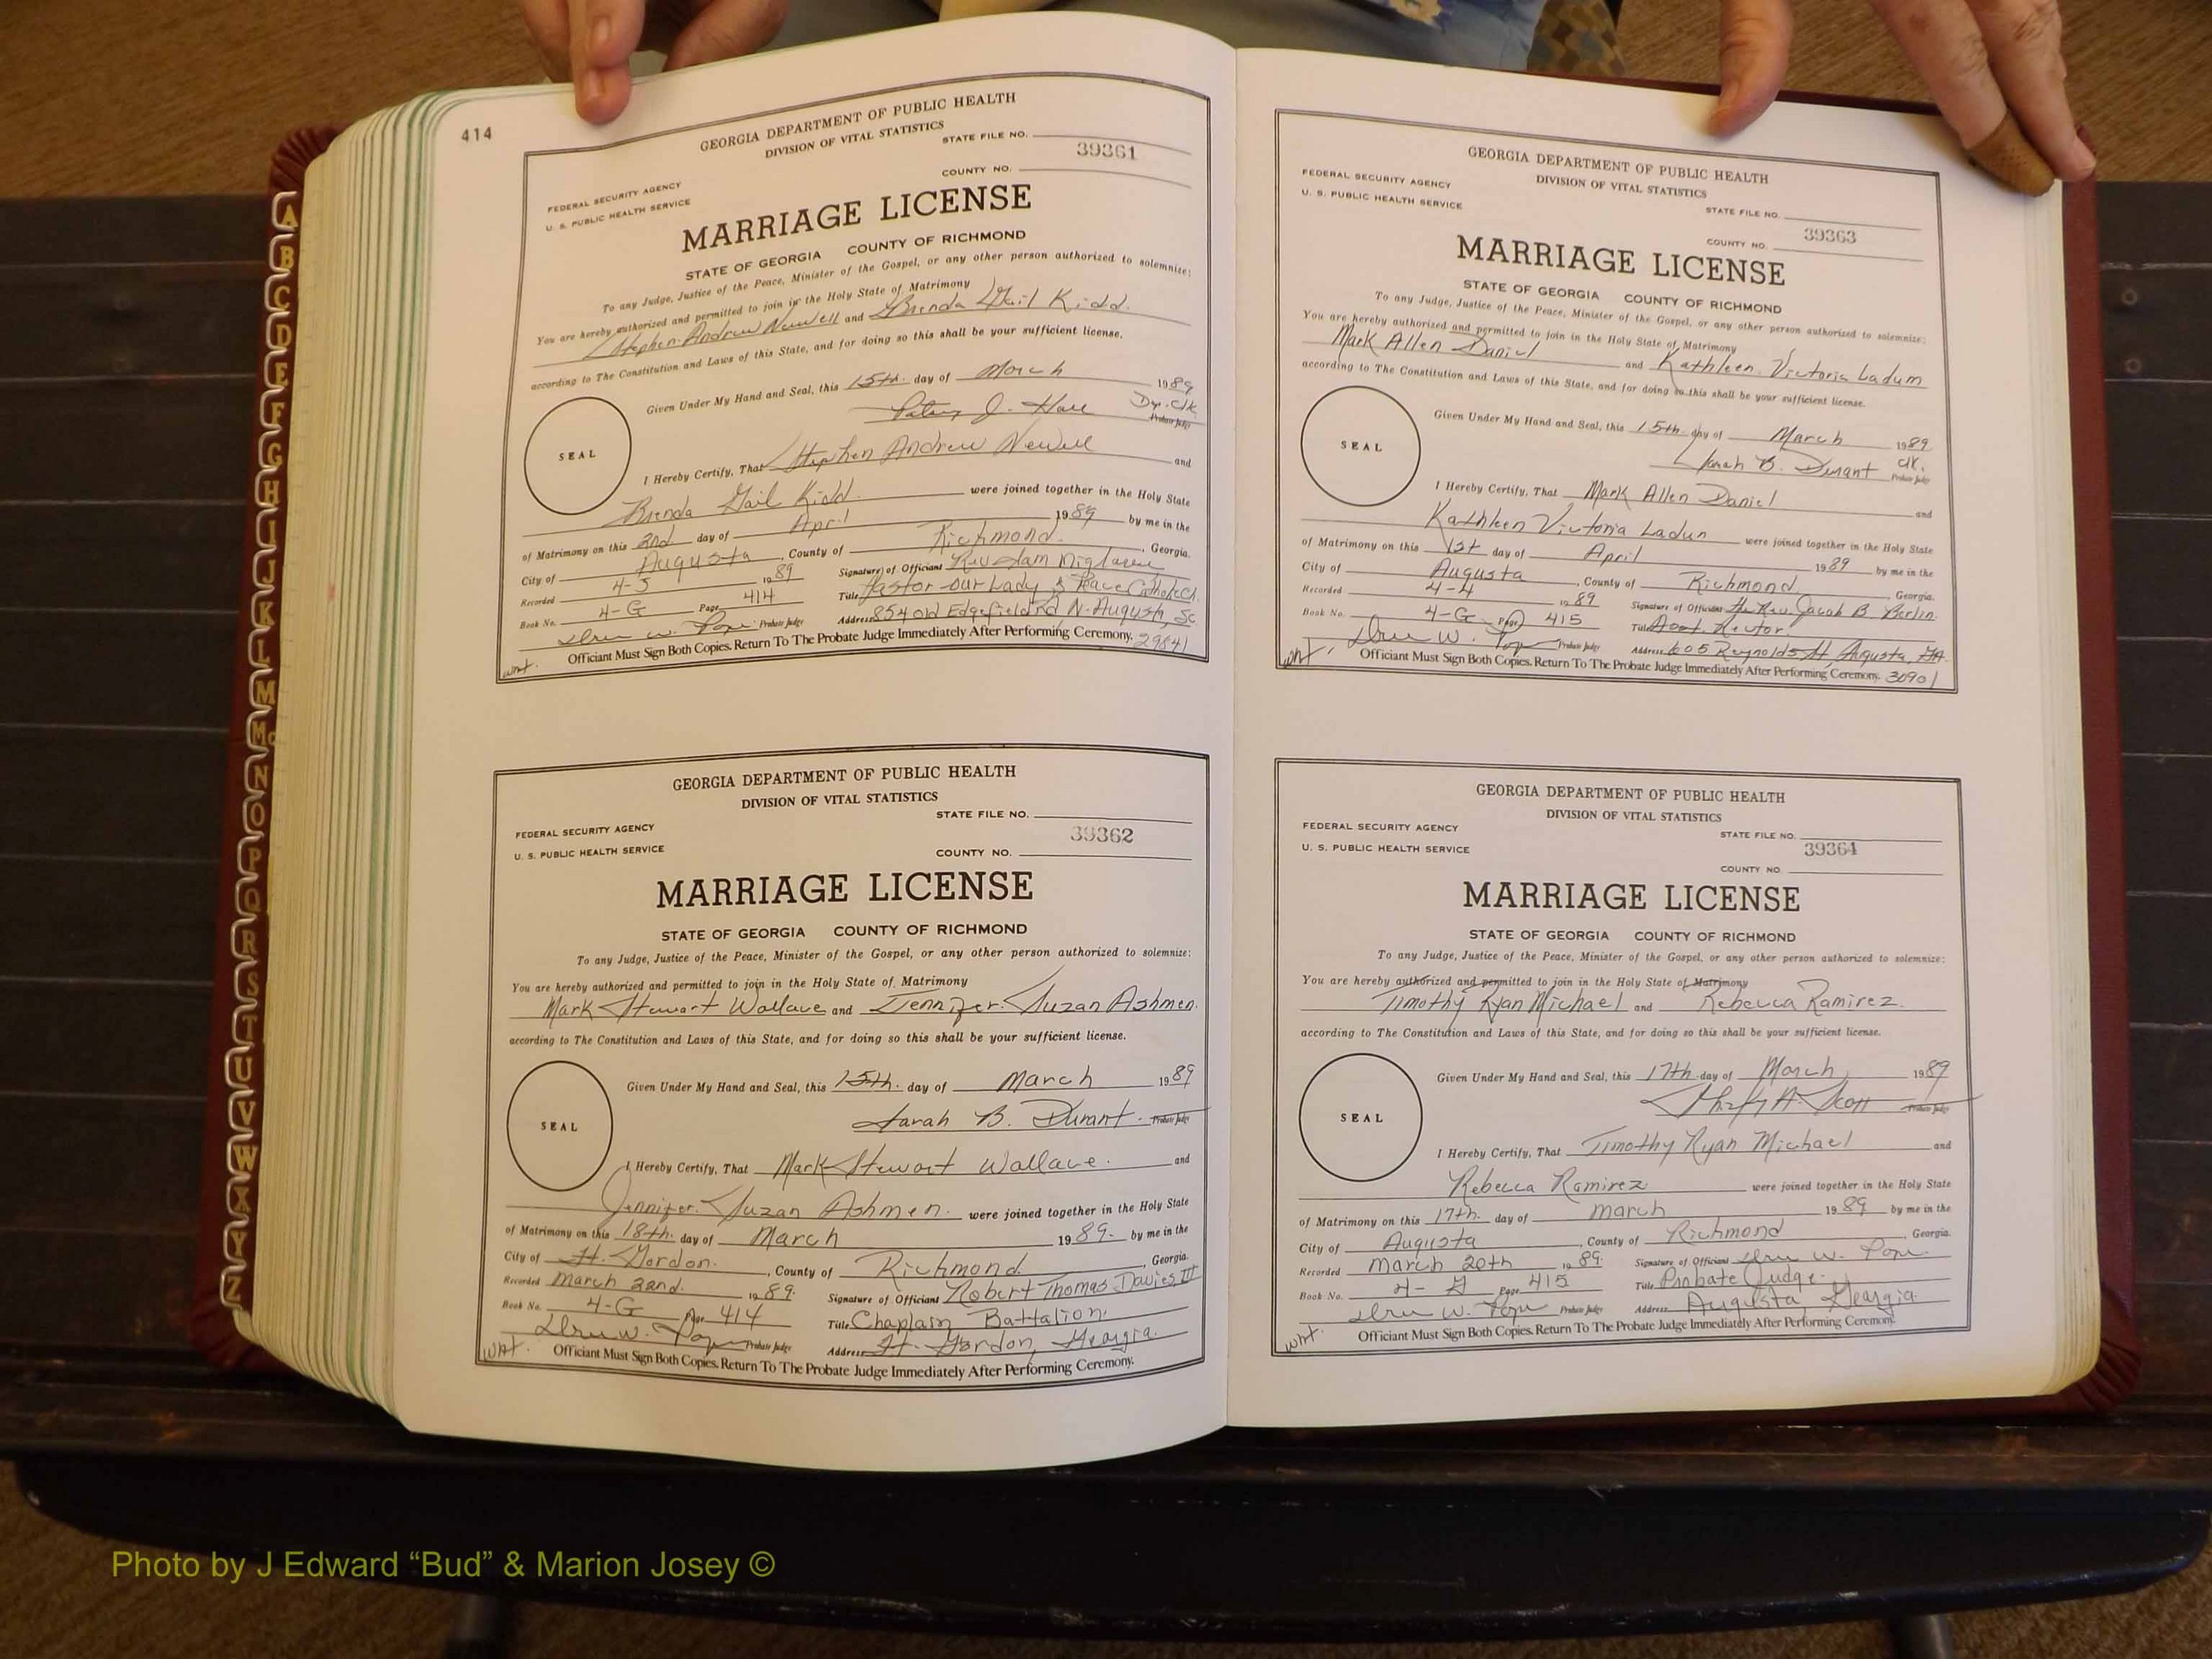 414
GEORGIA DEPARTMENT OF PUBLIC HEALTH
DIVISION OF VITAL STATISTICS
STATE FILE NO.
39361
FEDERAL SECURITY AGENCY
COUNTY NO.
U. S. PUBLIC HEALTH SERVICE
MARRIAGE LICENSE
STATE OF GEORGIA COUNTY OF RICHMOND
To any Judge, Justice of the Peace, Minister of the Gospel, or any other person authorized to solemnize:
You are hereby authorized and permitted to join in the Holy State of Matrimony
Stephen Andrew Newell and Brenda Gail Kidd.
according to The Constitution and Laws of this State, and for doing so this shall be your sufficient license.
Given Under My Hand and Seal, this 15th. day of March 1989
Dep. Clk.
Probate Judge
SEAL
I Hereby Certify, That Stephen Andrew Newell and
Brenda Gail Kidd were joined together in the Holy State
of Matrimony on this 2nd day of April 1989 by me in the
City of Augusta, County of Richmond, Georgia.
Recorded 4-5 1989 Signature of Officiant Rev. Sam
Book No. 4-G Page 414 Title Pastor Our Lady of Peace Catholic Ch.
Probate Judge Address 854 Old Edgefield Rd N. Augusta, SC
Officiant Must Sign Both Copies. Return To The Probate Judge Immediately After Performing Ceremony. 29841
wnt.
GEORGIA DEPARTMENT OF PUBLIC HEALTH
DIVISION OF VITAL STATISTICS
STATE FILE NO.
39362
FEDERAL SECURITY AGENCY
COUNTY NO.
U. S. PUBLIC HEALTH SERVICE
MARRIAGE LICENSE
STATE OF GEORGIA COUNTY OF RICHMOND
To any Judge, Justice of the Peace, Minister of the Gospel, or any other person authorized to solemnize:
You are hereby authorized and permitted to join in the Holy State of Matrimony
Mark Stewart Wallace and Jennifer Suzan Ashmen.
according to The Constitution and Laws of this State, and for doing so this shall be your sufficient license.
Given Under My Hand and Seal, this 15th. day of March 1989
Sarah B. Durant. Probate Judge
SEAL
I Hereby Certify, That Mark Stewart Wallace. and
Jennifer Suzan Ashmen. were joined together in the Holy State
of Matrimony on this 18th. day of March 1989. by me in the
City of Ft. Gordon., County of Richmond, Georgia.
Recorded March 22nd. 1989. Signature of Officiant Robert Thomas Davies III
Book No. 4-G Page 414 Title Chaplain Battalion,
Probate Judge Address Ft. Gordon, Georgia.
Officiant Must Sign Both Copies. Return To The Probate Judge Immediately After Performing Ceremony.
wnt.
GEORGIA DEPARTMENT OF PUBLIC HEALTH
DIVISION OF VITAL STATISTICS
FEDERAL SECURITY AGENCY
U. S. PUBLIC HEALTH SERVICE
STATE FILE NO.
39363
COUNTY NO.
MARRIAGE LICENSE
STATE OF GEORGIA COUNTY OF RICHMOND
To any Judge, Justice of the Peace, Minister of the Gospel, or any other person authorized to solemnize:
You are hereby authorized and permitted to join in the Holy State of Matrimony
Mark Allen Daniel and Kathleen Victoria Ladum
according to The Constitution and Laws of this State, and for doing so this shall be your sufficient license.
Given Under My Hand and Seal, this 15th day of March 1989
Sarah B. Durant Clk.
Probate Judge
SEAL
I Hereby Certify, That Mark Allen Daniel and
Kathleen Victoria Ladun were joined together in the Holy State
of Matrimony on this 1st day of April 1989 by me in the
City of Augusta, County of Richmond, Georgia.
Recorded 4-4 1989 Signature of Officiant The Rev. Jacob B. Berlin.
Book No. 4-G Page 415 Title Asst. Rector.
Probate Judge Address 605 Reynolds St, Augusta, GA
Officiant Must Sign Both Copies. Return To The Probate Judge Immediately After Performing Ceremony. 30901
wnt.
GEORGIA DEPARTMENT OF PUBLIC HEALTH
DIVISION OF VITAL STATISTICS
FEDERAL SECURITY AGENCY
STATE FILE NO.
U. S. PUBLIC HEALTH SERVICE
39364
COUNTY NO.
MARRIAGE LICENSE
STATE OF GEORGIA COUNTY OF RICHMOND
To any Judge, Justice of the Peace, Minister of the Gospel, or any other person authorized to solemnize:
You are hereby authorized and permitted to join in the Holy State of Matrimony
Timothy Ryan Michael and Rebecca Ramirez.
according to The Constitution and Laws of this State, and for doing so this shall be your sufficient license.
Given Under My Hand and Seal, this 17th day of March 1989
A. Scott Probate Judge
SEAL
I Hereby Certify, That Timothy Ryan Michael and
Rebecca Ramirez were joined together in the Holy State
of Matrimony on this 17th. day of March 1989 by me in the
City of Augusta, County of Richmond, Georgia.
Recorded March 20th 1989. Signature of Officiant
Book No. 4-G Page 415 Title Probate Judge.
Probate Judge Address Augusta, Georgia.
Officiant Must Sign Both Copies. Return To The Probate Judge Immediately After Performing Ceremony.
wnt.
A
B
C
D
E
F
G
H
I
J
K
L
M
Mc
N
O
P
Q
R
S
T
U
V
W
X
Y
Z
Photo by J Edward “Bud” & Marion Josey ©